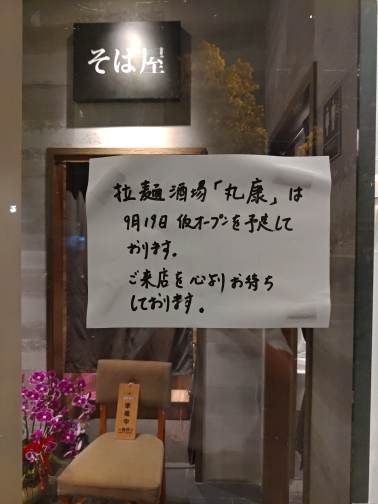 そば屋
拉麺酒場「丸康」は
9月19日仮オープンを予定して
おります。
ご来店を心よりお待ち
しております。
準備中